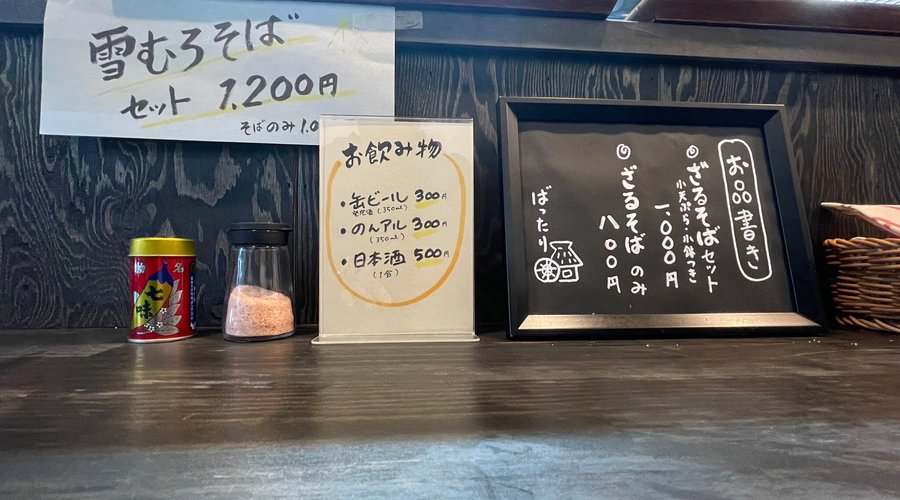 雪むろそば
セット 1,200円
そばのみ 1.0
お飲み物
・缶ビール 300円
発泡酒(350ml)
・のんアル 300円
(350ml)
・日本酒 500円
(1合)
お品書き
◎ざるそばセット
小天ぷら・小鉢つき
一、〇〇〇円
◎ざるそばのみ
八〇〇円
ばったり
名
七味